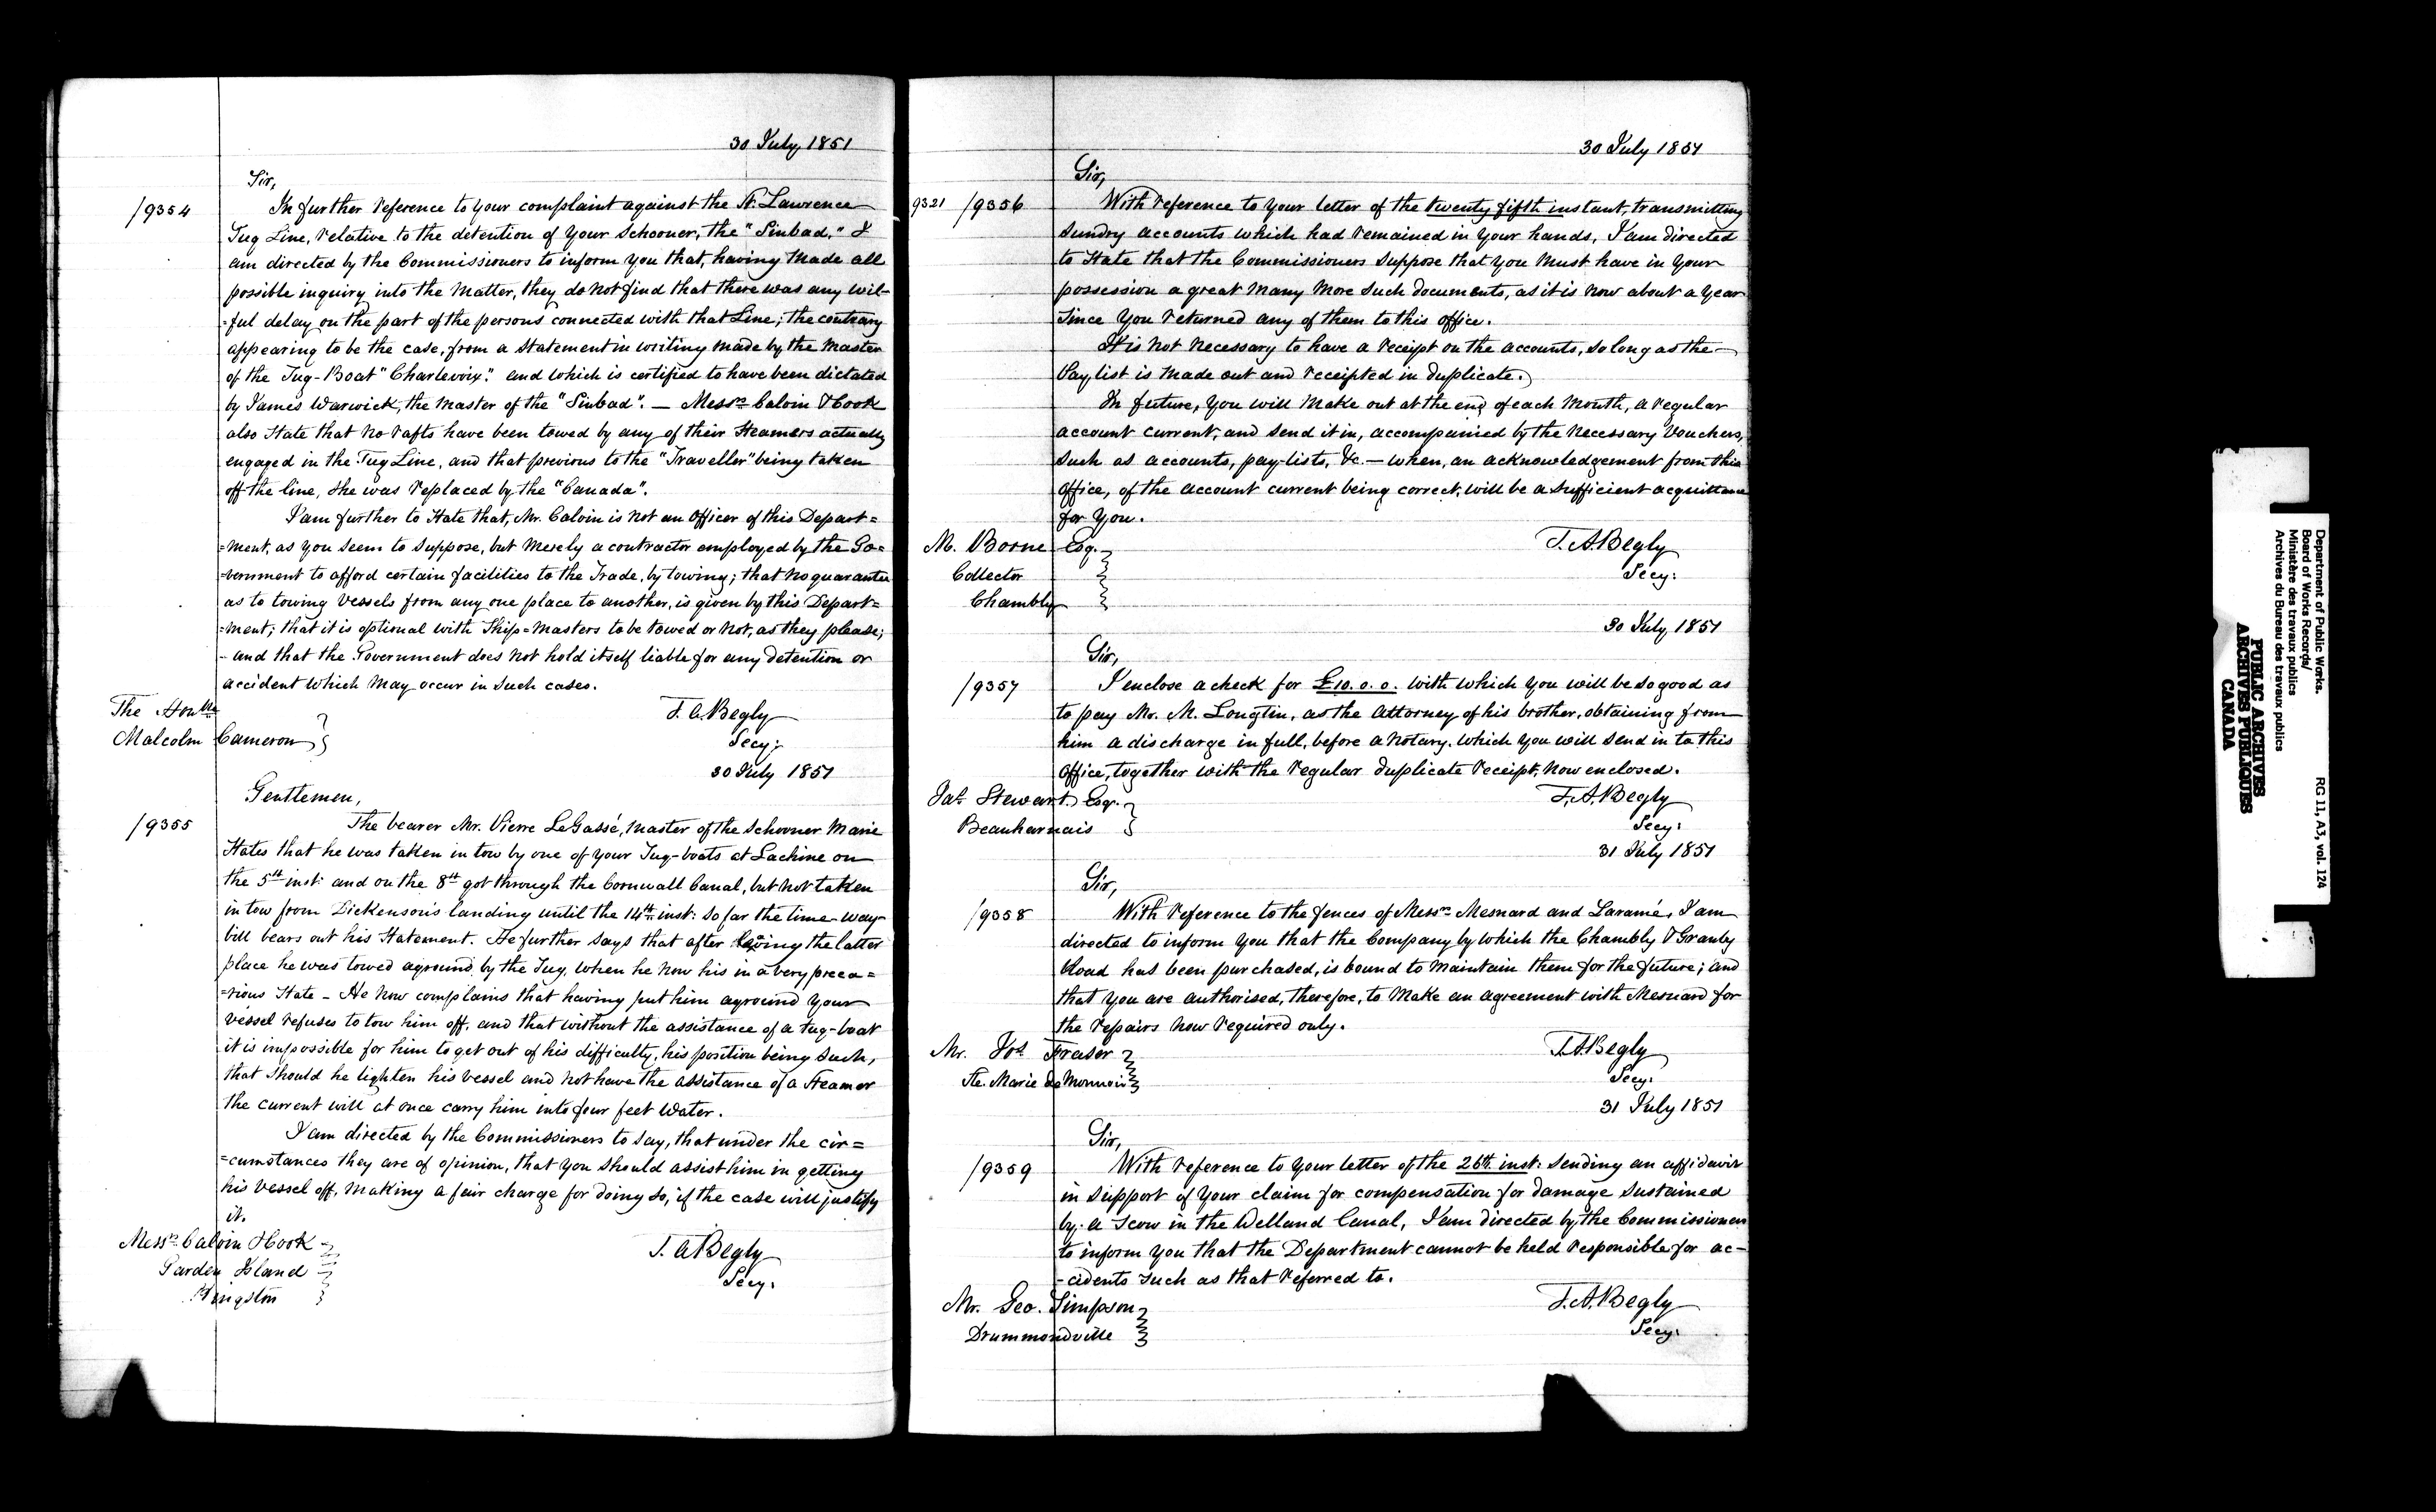 30 July 1851
Sir,
/9354
In further reference to your complaint against the St. Lawrence
Tug Line, relative to the detention of your Schooner, the "Sinbad," I
am directed by the Commissioners to inform you that, having made all
possible inquiry into the matter, they do not find that there was any wil-
=ful delay on the part of the persons connected with that Line; the contrary
appearing to be the case, from a statement in writing made by the Master
of the Tug-Boat "Charlevoix." and which is certified to have been dictated
by James Warwick, the master of the "Sinbad". — Messrs Calvin & Cook
also state that no rafts have been towed by any of their Steamers actually
engaged in the Tug Line, and that previous to the "Traveller" being taken
off the line, she was replaced by the "Canada".
I am further to state that, Mr. Calvin is not an Officer of this Depart=
=ment, as you seem to suppose, but merely a contractor employed by the Go=
=vernment to afford certain facilities to the Trade, by towing; that no guarantee
as to towing vessels from any one place to another, is given by this Depart=
=ment; that it is optional with Ship=Masters to be towed or not, as they please;
- and that the Government does not hold itself liable for any detention or
accident which may occur in such cases.
The Honble
Malcolm Cameron
T. A. Begly
Secy:
30 July 1851
Gentlemen,
/9355
The bearer Mr. Pierre LeGassé, master of the Schooner Marie
States that he was taken in tow by one of your Tug-boats at Lachine on
the 5th inst: and on the 8th got through the Cornwall Canal, but not taken
in tow from Dickenson's landing until the 14th inst: So far the time-way-
bill bears out his Statement. He further says that after leaving the latter
place he was towed aground by the Tug, when he now his in a very preca=
=rious State - He now complains that having put him aground your
vessel refuses to tow him off, and that without the assistance of a tug-boat
it is impossible for him to get out of his difficulty, his position being such,
that should he lighten his vessel and not have the assistance of a Steamer
the current will at once carry him into four feet water.
I am directed by the Commissioners to say, that under the cir=
=cumstances they are of opinion, that you should assist him in getting
his vessel off, making a fair charge for doing so, if the case will justify
it.
Messrs. Calvin & Cook
Garden Island
Kingston
T. A. Begly
Secy.
30 July 1851
Sir,
9321 /9356
With reference to your letter of the twenty fifth instant, transmitting
sundry accounts which had remained in your hands, I am directed
to state that the Commissioners suppose that you must have in your
possession a great many more such documents, as it is now about a year
since you returned any of them to this office.
It is not necessary to have a receipt on the accounts, so long as the
Pay list is made out and receipted in duplicate.
In future, you will make out at the end of each month, a regular
account current, and send it in, accompanied by the necessary vouchers,
such as accounts, pay-lists, &c. — when, an acknowledgement from this
office, of the account current being correct, will be a sufficient acquittance
for you.
M. Borne Esq.
Collector
Chambly
T. A. Begly
Secy:
30 July 1851
Sir,
/9357
I enclose a check for £10. 0. 0. with which you will be so good as
to pay Mr. M. Longtin, as the Attorney of his brother, obtaining from
him a discharge in full, before a notary, which you will send in to this
office, together with the regular duplicate receipt, now enclosed.
Jas. Stewart. Esq.
Beauharnais
T. A. Begly
Secy:
31 July 1851
Sir,
/9358
With reference to the fences of Messrs Mesnard and Laramé, I am
directed to inform you that the Company by which the Chambly & Granby
Road has been purchased, is bound to maintain them for the future; and
that you are authorised, therefore, to make an agreement with Mesnard for
the repairs now required only.
Mr. Jos Fraser
Ste. Marie de Monnoir
T. A. Begly
Secy:
31 July 1851
Sir,
/9359
With reference to your letter of the 26th. inst: sending an affidavit
in support of your claim for compensation for damage sustained
by a Scow in the Welland Canal, I am directed by the Commissioners
to inform you that the Department cannot be held responsible for ac-
-cidents such as that referred to.
Mr. Geo. Simpson
Drummondville
T. A. Begly
Secy.
Department of Public Works.
Board of Works Records/
Ministère des travaux publics
Archives du Bureau des travaux publics
RG 11, A3, vol. 124
PUBLIC ARCHIVES
ARCHIVES PUBLIQUES
CANADA